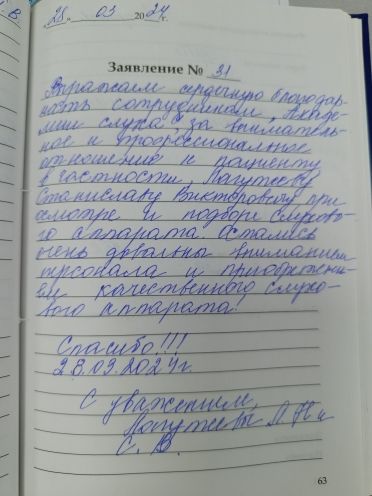 "28" 03 2024 г.
Заявление № 31
Выражаем сердечную благодар-
ность сотрудникам „Акаде-
мии слуха" за вниматель-
ное и профессиональное
отношение к пациенту
в частности, Лагутееву
Станиславу Викторовичу при
осмотре и подборе слухово-
го аппарата. Остались
очень довольны вниманием
персонала и приобретени-
ем качественного слухо-
вого аппарата!
Спасибо!!!
28.03.2024г.
С уважением,
Лагутеевы Л. Н и
С. В.
63